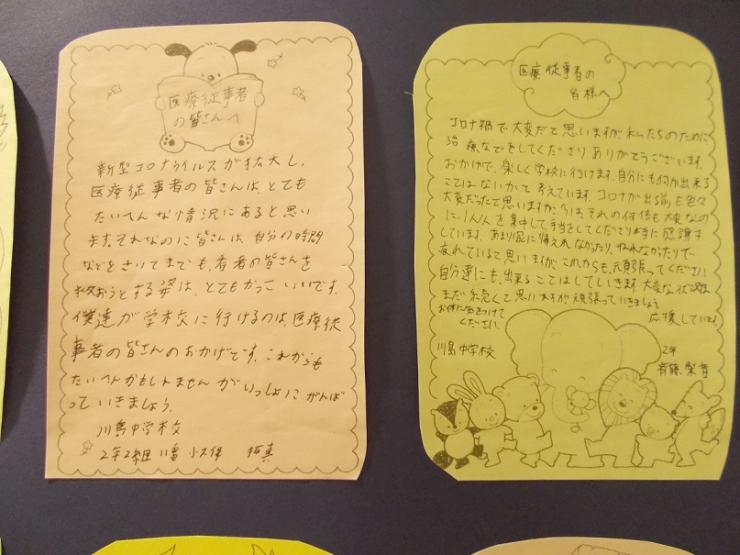 医療従事者
の皆さんへ
新型コロナウイルスが拡大し、
医療従事者の皆さんは、とても
たいへんな情況にあると思い
ます。それなのに皆さんは、自分の時間
などをさいてまでも、患者の皆さんを
救おうとする姿は、とてもかっこいいです。
僕達が学校に行けるのは、医療従
事者の皆さんのおかげです。これからも
たいへんかもしれませんがいっしょにがんば
っていきましょう。
川島中学校
2年2組
医療従事者の
皆様へ
コロナ禍で大変だと思いますが私たちのために
治療などをしてくださりありがとうございます。
おかげで、楽しく学校に行けます。自分にも何か出来る
ことはないかと考えています。コロナが出る前も色々
大変だったと思いますが、今は、それの何倍も大変なの
に1人1人を集中して手当をしてくださり本当に感謝す
しています。あまり家に帰えれなかったり、ねれなかったりで
疲れていると思いますが、これからも、頑張ってください
自分達にも、出来ることはしていきます。大変な状況は
まだ続くと思いますが頑張っていきましょう
お体に気をつけて
ください。
応援しています。
川島中学校
2年